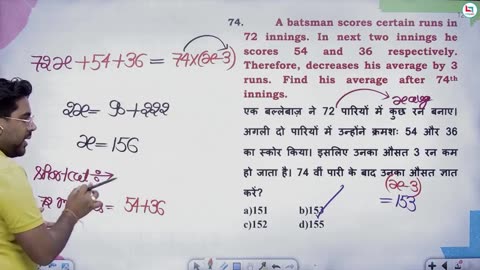 74. A batsman scores certain runs in
72 innings. In next two innings he
scores 54 and 36 respectively.
Therefore, decreases his average by 3
runs. Find his average after 74th
innings.
x avg
एक बल्लेबाज़ ने 72 पारियों में कुछ रन बनाए।
अगली दो पारियों में उन्होंने क्रमशः 54 और 36
का स्कोर किया। इसलिए उनका औसत 3 रन कम
हो जाता है। 74 वीं पारी के बाद उनका औसत ज्ञात
करें?
a)151 b)153
c)152 d)155
(x-3)
=153
72x+54+36 = 74x(x-3)
2x= 90+222
x=156
Shortcut :→
= 54+36